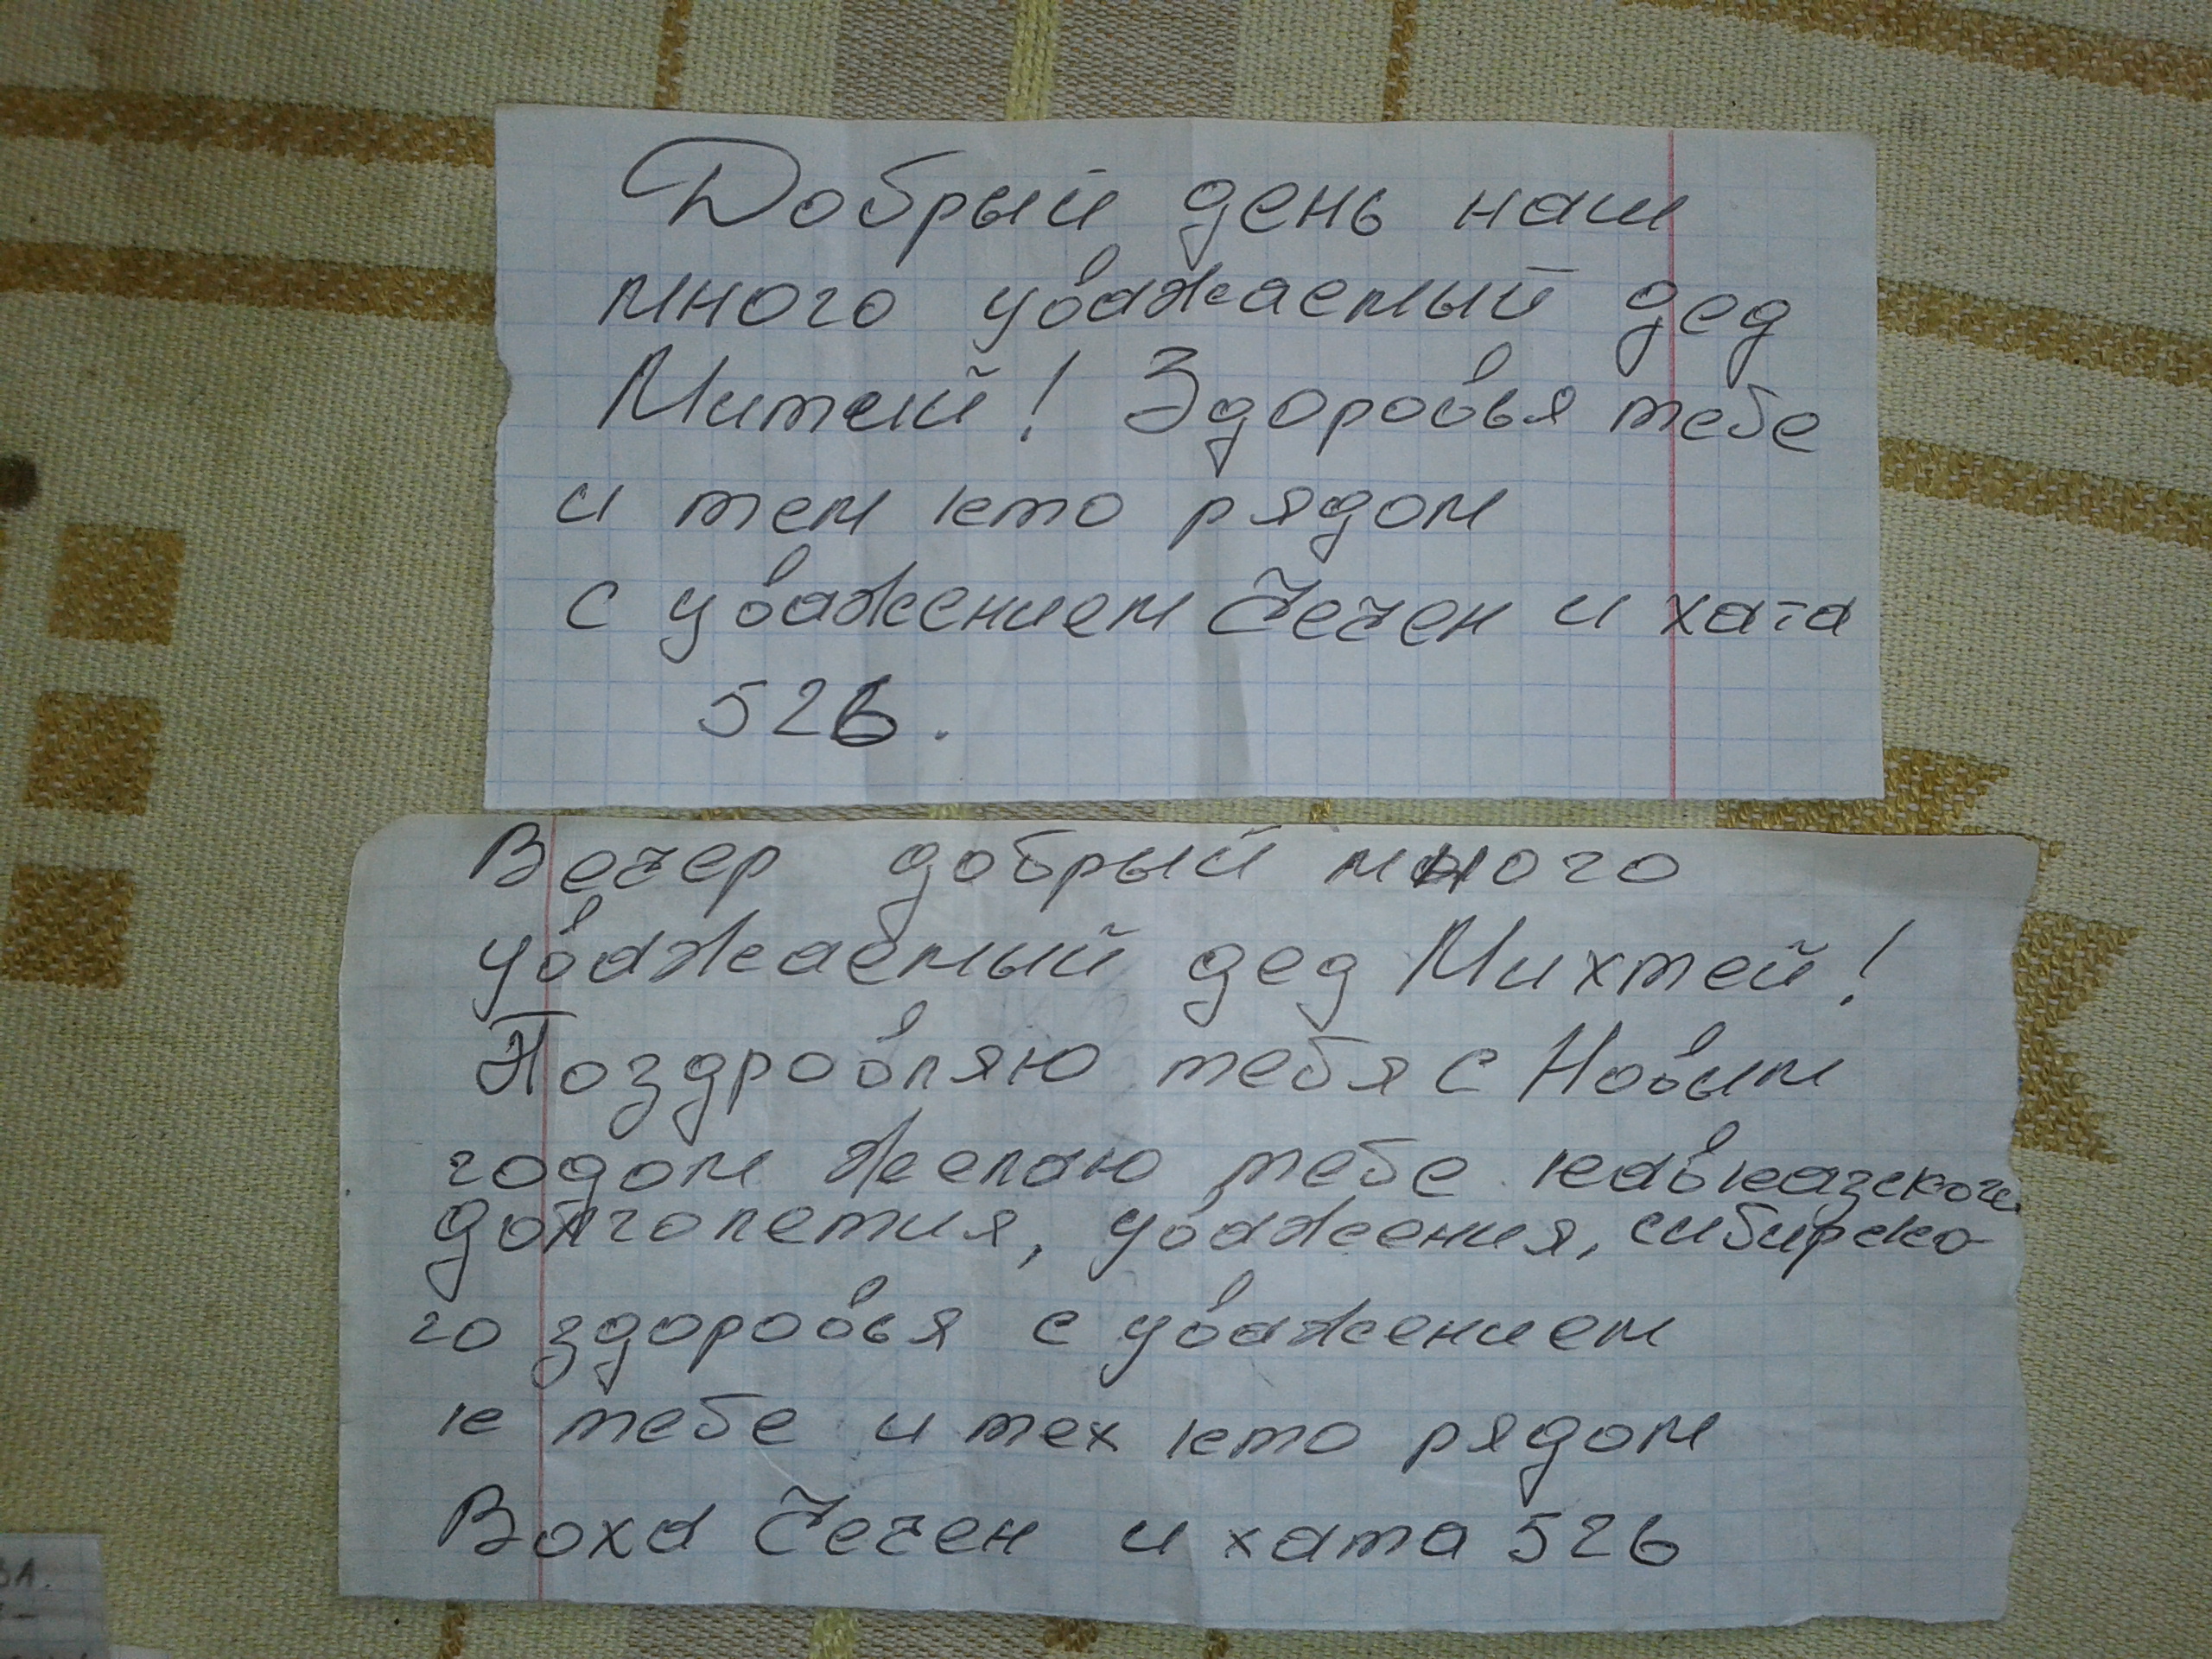 Добрый день наш
много уважаемый дед
Митяй! Здоровья тебе
и тем кто рядом
с уважением Чечен и хата
526.
Вечер добрый много
уважаемый дед Михтей!
Поздровляю тебя с Новым
годом желаю тебе кавказского
долголетия, уважения, сибирско-
го здоровья с уважением
к тебе и тех кто рядом
Воха Чечен и хата 526